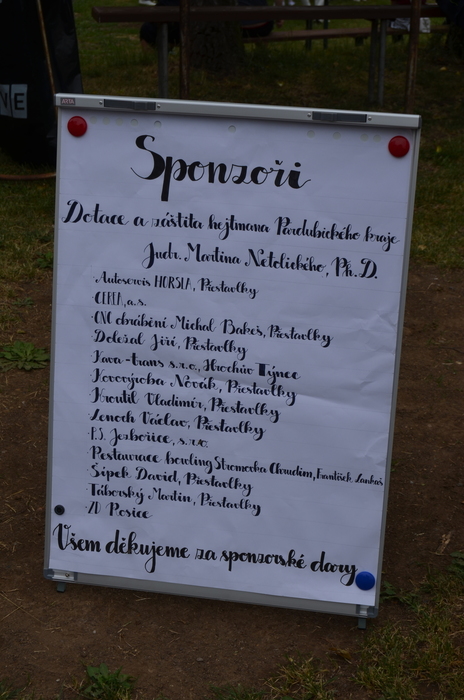 NE
Sponzoři
Dotace a záštita hejtmana Pardubického kraje
Judr. Martina Netolického, Ph.D.
·Autoservis HORSIA, Přestavlky
·CEREA, a.s.
·CNC obrábění Michal Bakeš, Přestavlky
Doležal Jiří, Přestavlky
·Kava-trans s.r.o., Hrochův Týnec
·Kovovýroba Novák, Přestavlky
·Kroutil Vladimír, Přestavlky
·Lenoch Václav, Přestavlky
·P.S. Jezbořice, s.r.o.
·Restaurace bowling Stromovka Chrudim, František
·Šípek David, Přestavlky
·Táborský Martin, Přestavlky
·ZD Rosice
Všem děkujeme za sponzorské dary